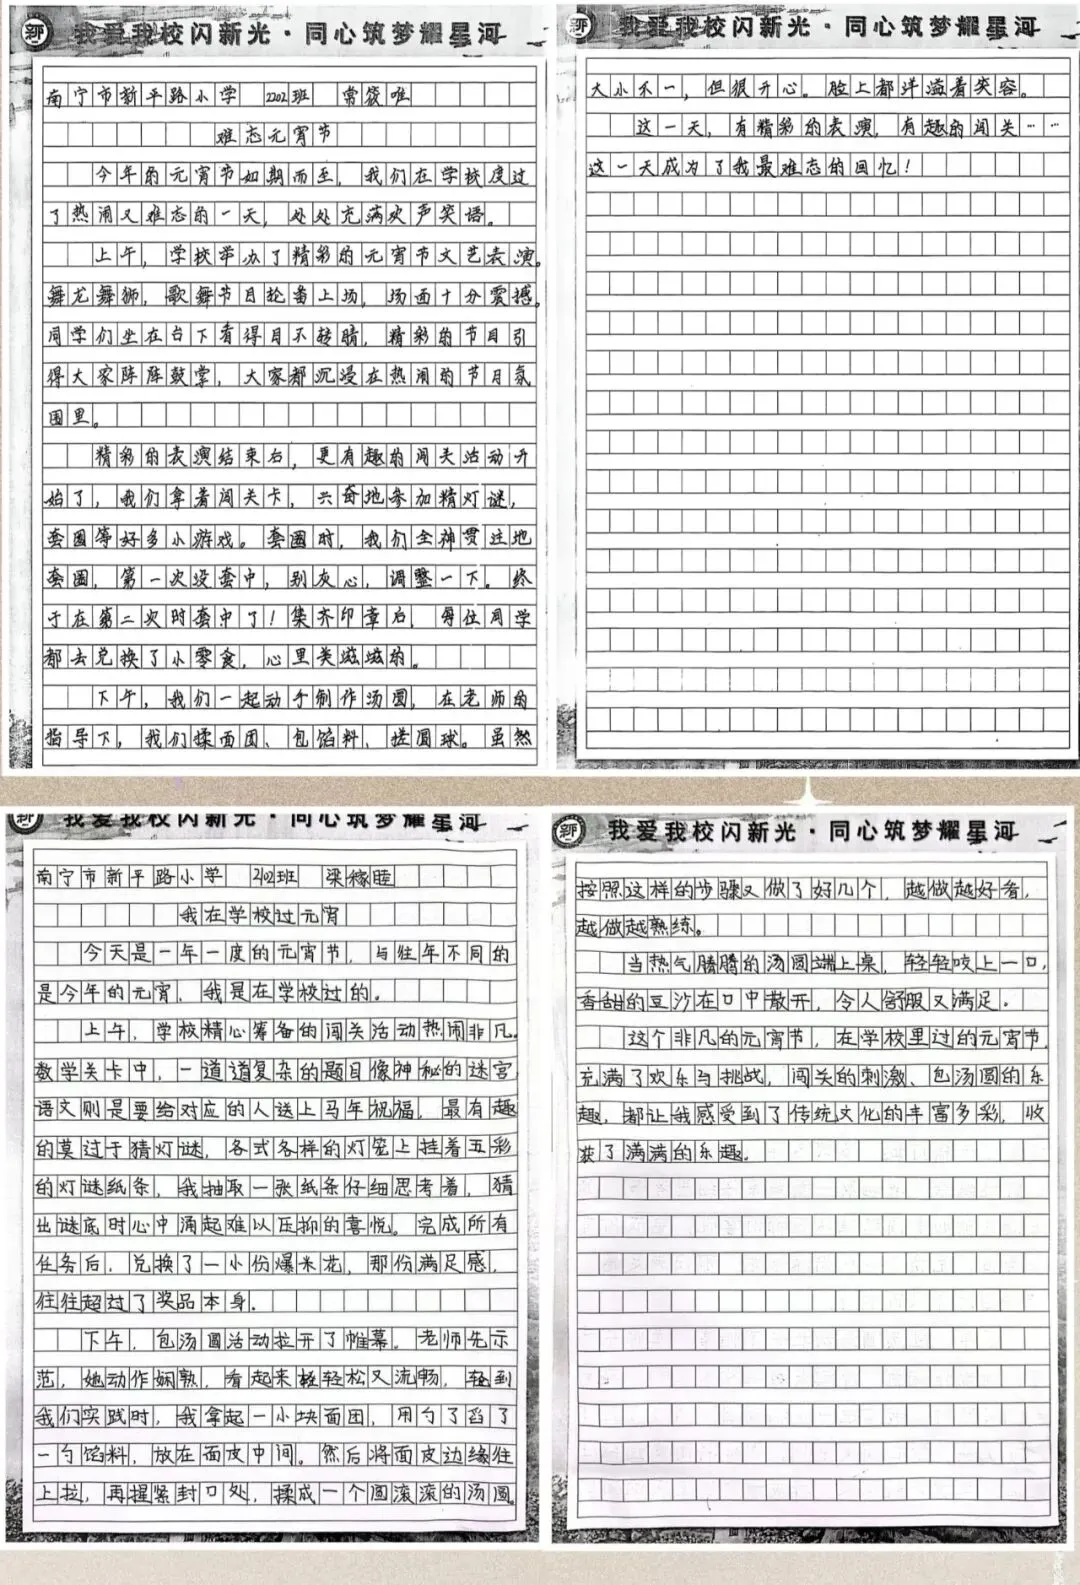 我爱我校闪新光·同心筑梦耀星河
南宁市新平路小学 2202班 常筱唯
难忘元宵节
今年的元宵节如期而至，我们在学校度过
了热闹又难忘的一天，处处充满欢声笑语。
上午，学校举办了精彩的元宵节文艺表演。
舞龙舞狮，歌舞节目轮番上场，场面十分震撼。
同学们坐在台下看得目不转睛，精彩的节目引
得大家阵阵鼓掌，大家都沉浸在热闹的节日氛
围里。
精彩的表演结束后，更有趣的闯关活动开
始了，我们拿着闯关卡，兴奋地参加精灯谜，
套圈等好多小游戏。套圈时，我们全神贯注地
套圈，第一次没套中，别灰心，调整一下。终
于在第二次时套中了！集齐印章后，每位同学
都去兑换了小零食，心里美滋滋的。
下午，我们一起动手制作汤圆，在老师的
指导下，我们揉面团、包馅料、搓圆球。虽然
我爱我校闪新光·同心筑梦耀星河
大小不一，但很开心。脸上都洋溢着笑容。
这一天，有精彩的表演，有趣的闯关……
这一天成为了我最难忘的回忆！
我爱我校闪新光·同心筑梦耀星河
南宁市新平路小学 2402班 梁稼睦
我在学校过元宵
今天是一年一度的元宵节，与往年不同的
是今年的元宵，我是在学校过的。
上午，学校精心筹备的闯关活动热闹非凡。
数学关卡中，一道道复杂的题目像神秘的迷宫，
语文则是要给对应的人送上马年祝福，最有趣
的莫过于猜灯谜，各式各样的灯笼上挂着五彩
的灯谜纸条，我抽取一张纸条仔细思考着，猜
出谜底时心中涌起难以压抑的喜悦。完成所有
任务后，兑换了一小份爆米花，那份满足感，
往往超过了奖品本身。
下午，包汤圆活动拉开了帷幕。老师先示
范，她动作娴熟，看起来轻轻松又流畅，轮到
我们实践时，我拿起一小块面团，用勺了舀了
一勺馅料，放在面皮中间。然后将面皮边缘往
上拉，再捏紧封口处，揉成一个圆滚滚的汤圆。
我爱我校闪新光·同心筑梦耀星河
按照这样的步骤又做了好几个，越做越好看，
越做越熟练。
当热气腾腾的汤圆端上桌，轻轻咬上一口，
香甜的豆沙在口中散开，令人舒服又满足。
这个非凡的元宵节，在学校里过的元宵节，
充满了欢乐与挑战，闯关的刺激、包汤圆的乐
趣，都让我感受到了传统文化的丰富多彩，收
获了满满的乐趣。